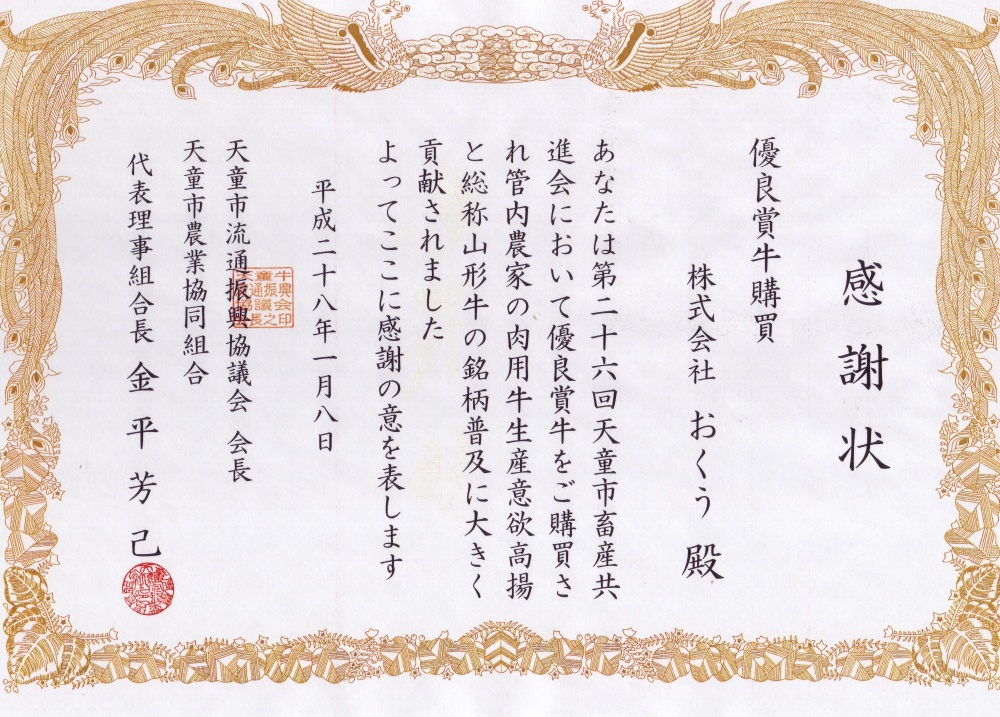 感謝状
優良賞牛購買
株式会社 おくう 殿
あなたは第二十六回天童市畜産共
進会において優良賞牛をご購買さ
れ管内農家の肉用牛生産意欲高揚
と総称山形牛の銘柄普及に大きく
貢献されました
よってここに感謝の意を表します
平成二十八年一月八日
天童市流通振興協議会 会長
天童市農業協同組合
代表理事組合長 金平芳己